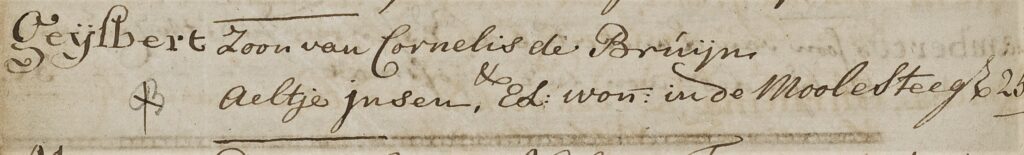 Geijsbert Zoon van Cornelis de Bruijn
&
Aeltje jnsen, El: won: in de Moolesteeg 25